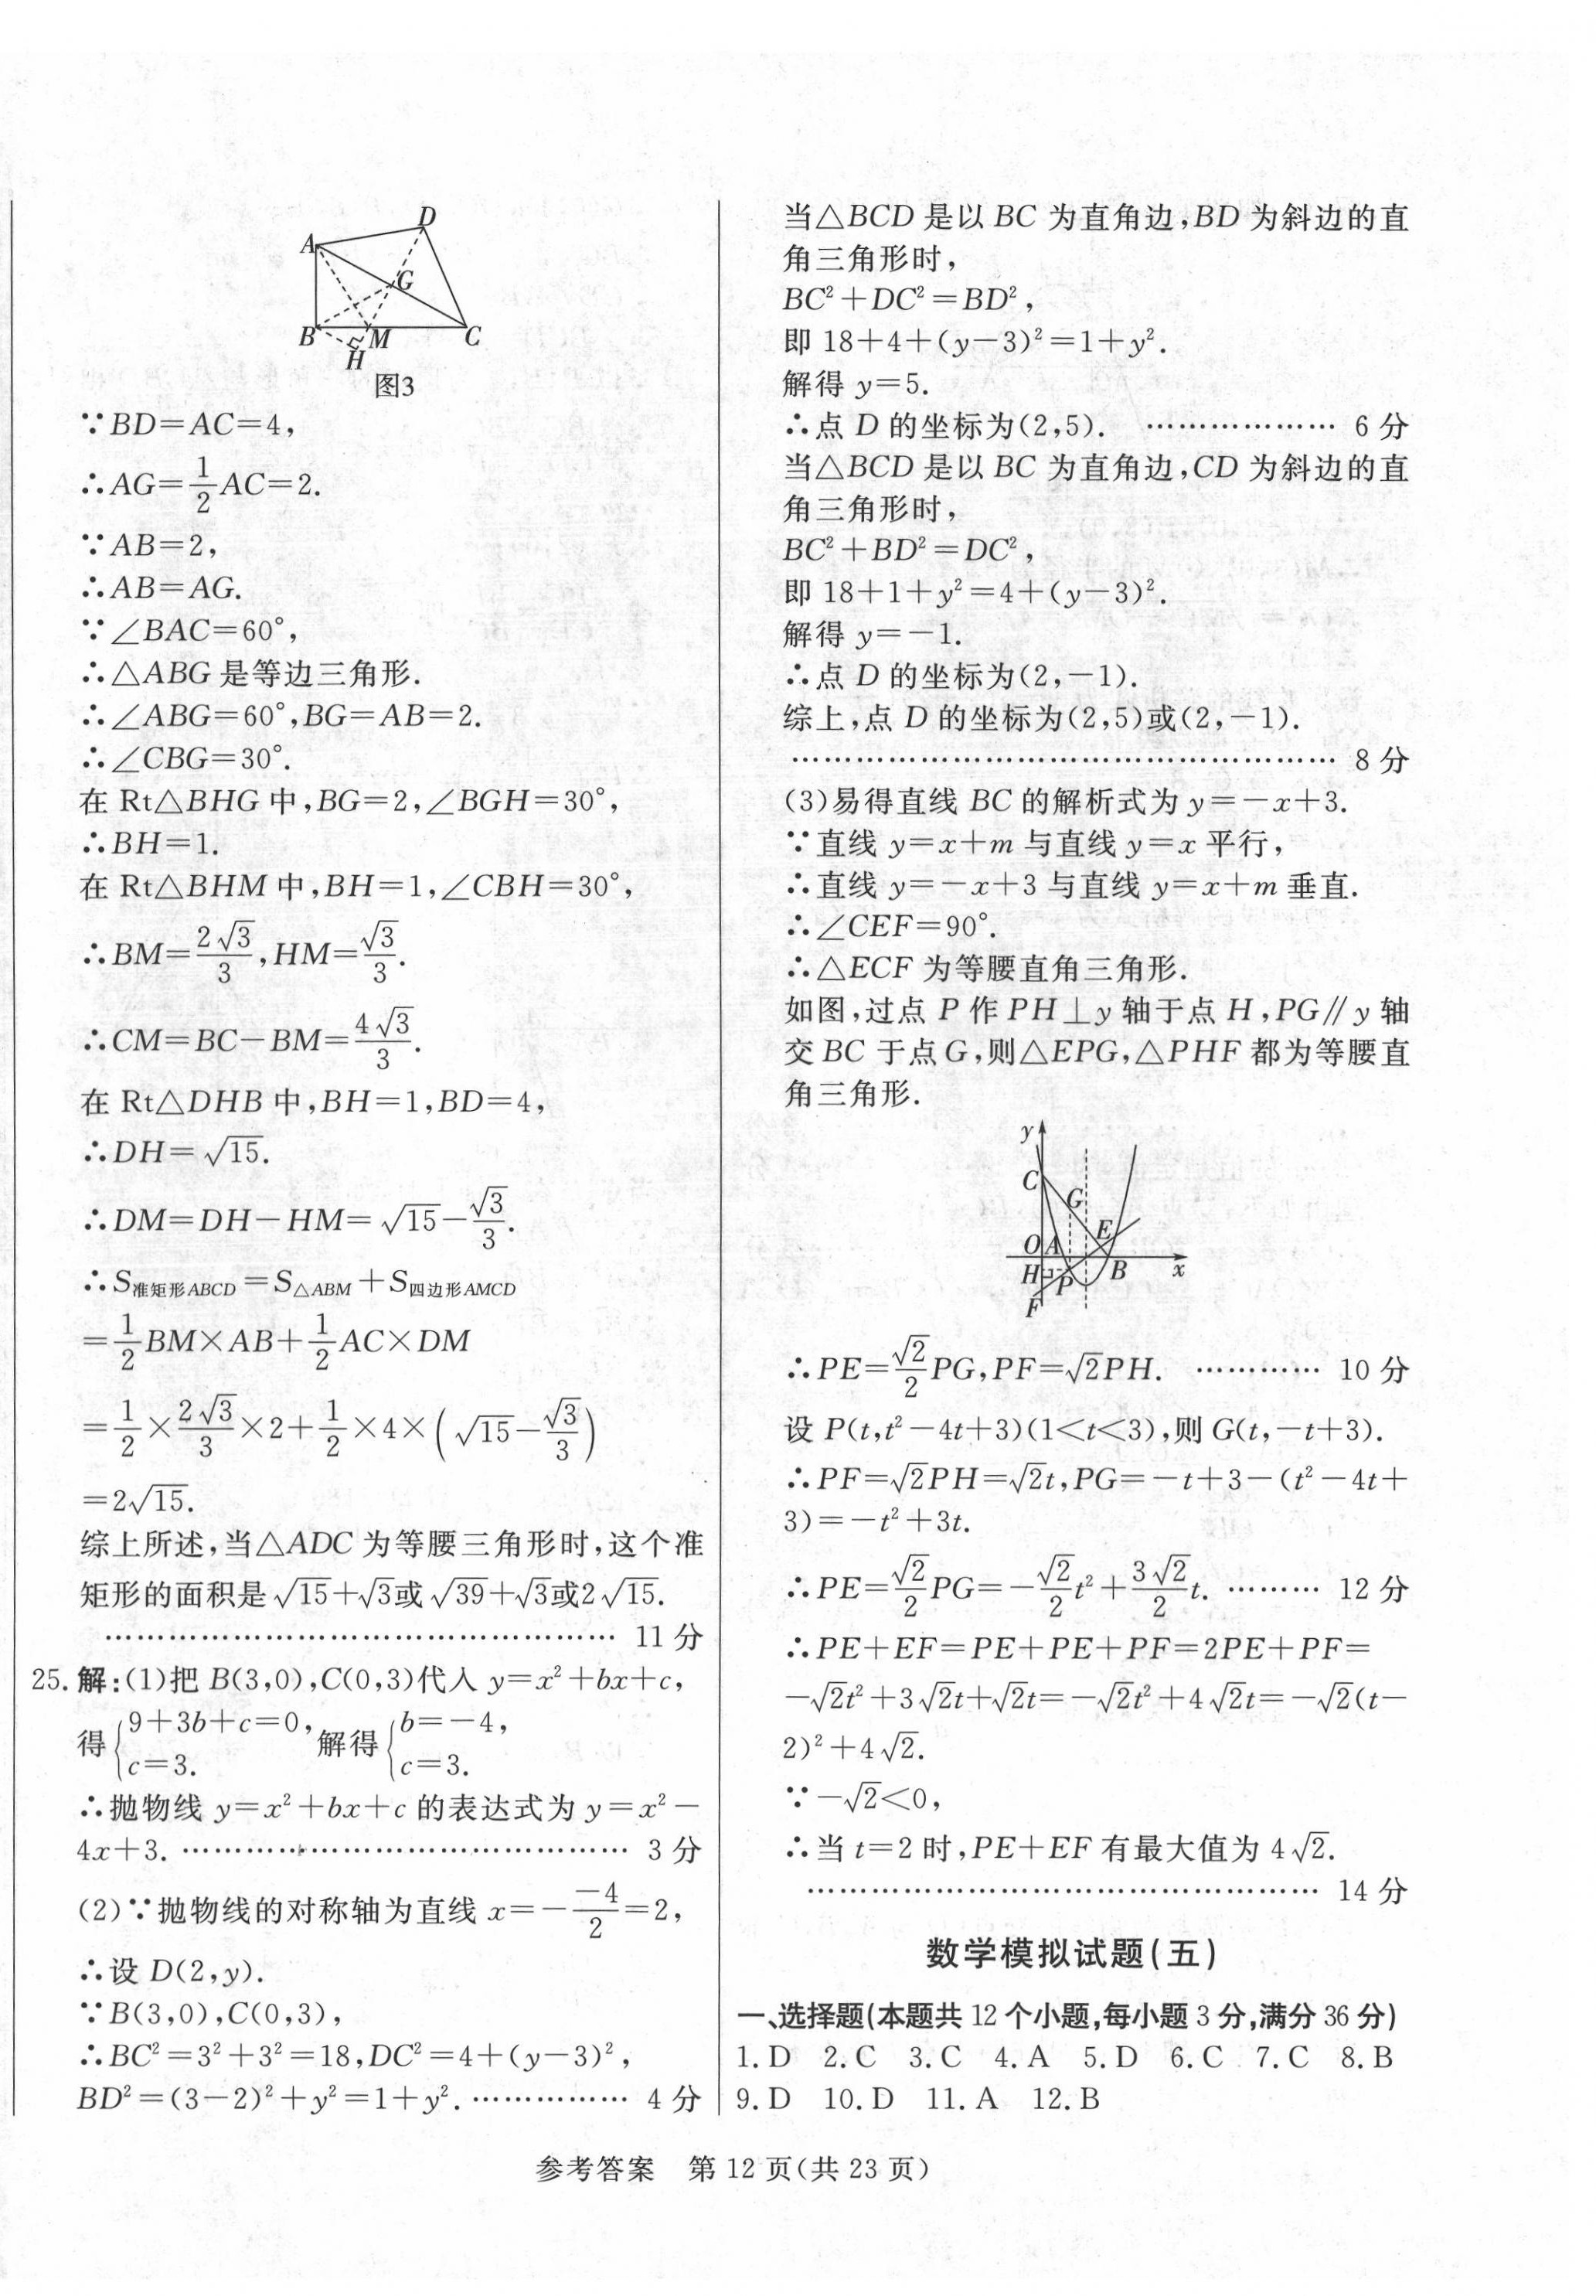 D
A
G
B
M
C
H
图3
∵BD=AC=4,
∴AG=1/2AC=2.
∵AB=2,
∴AB=AG.
∵∠BAC=60°,
∴△ABG是等边三角形.
∴∠ABG=60°,BG=AB=2.
∴∠CBG=30°.
在Rt△BHG中,BG=2,∠BGH=30°,
∴BH=1.
在Rt△BHM中,BH=1,∠CBH=30°,
∴BM=2√3/3,HM=√3/3.
∴CM=BC-BM=4√3/3.
在Rt△DHB中,BH=1,BD=4,
∴DH=√15.
∴DM=DH-HM=√15-√3/3.
∴S准矩形ABCD=S△ABM+S四边形AMCD
=1/2BM×AB+1/2AC×DM
=1/2×2√3/3×2+1/2×4×(√15-√3/3)
=2√15.
综上所述,当△ADC为等腰三角形时,这个准
矩形的面积是√15+√3或√39+√3或2√15.
…………………………………………… 11分
25.解:(1)把B(3,0),C(0,3)代入y=x²+bx+c,
得{9+3b+c=0, c=3. 解得{b=-4, c=3.
∴抛物线y=x²+bx+c的表达式为y=x²-
4x+3. …………………………………… 3分
(2)∵抛物线的对称轴为直线x=--4/2=2,
∴设D(2,y).
∵B(3,0),C(0,3),
∴BC²=3²+3²=18,DC²=4+(y-3)²,
BD²=(3-2)²+y²=1+y². …………… 4分
当△BCD是以BC为直角边,BD为斜边的直
角三角形时,
BC²+DC²=BD²,
即18+4+(y-3)²=1+y².
解得y=5.
∴点D的坐标为(2,5). ……………… 6分
当△BCD是以BC为直角边,CD为斜边的直
角三角形时,
BC²+BD²=DC²,
即18+1+y²=4+(y-3)².
解得y=-1.
∴点D的坐标为(2,-1).
综上,点D的坐标为(2,5)或(2,-1).
……………………………………………… 8分
(3)易得直线BC的解析式为y=-x+3.
∵直线y=x+m与直线y=x平行,
∴直线y=-x+3与直线y=x+m垂直.
∴∠CEF=90°.
∴△ECF为等腰直角三角形.
如图,过点P作PH⊥y轴于点H,PG∥y轴
交BC于点G,则△EPG,△PHF都为等腰直
角三角形.
y
C
G
E
O
A
H
P
B
x
F
∴PE=√2/2PG,PF=√2PH. ………… 10分
设P(t,t²-4t+3)(1<t<3),则G(t,-t+3).
∴PF=√2PH=√2t,PG=-t+3-(t²-4t+
3)=-t²+3t.
∴PE=√2/2PG=-√2/2t²+3√2/2t. ……… 12分
∴PE+EF=PE+PE+PF=2PE+PF=
-√2t²+3√2t+√2t=-√2t²+4√2t=-√2(t-
2)²+4√2.
∵-√2<0,
∴当t=2时,PE+EF有最大值为4√2.
…………………………………………… 14分
数学模拟试题(五)
一、选择题(本题共12个小题,每小题3分,满分36分)
1.D 2.C 3.C 4.A 5.D 6.C 7.C 8.B
9.D 10.D 11.A 12.B
参考答案 第12页(共23页)